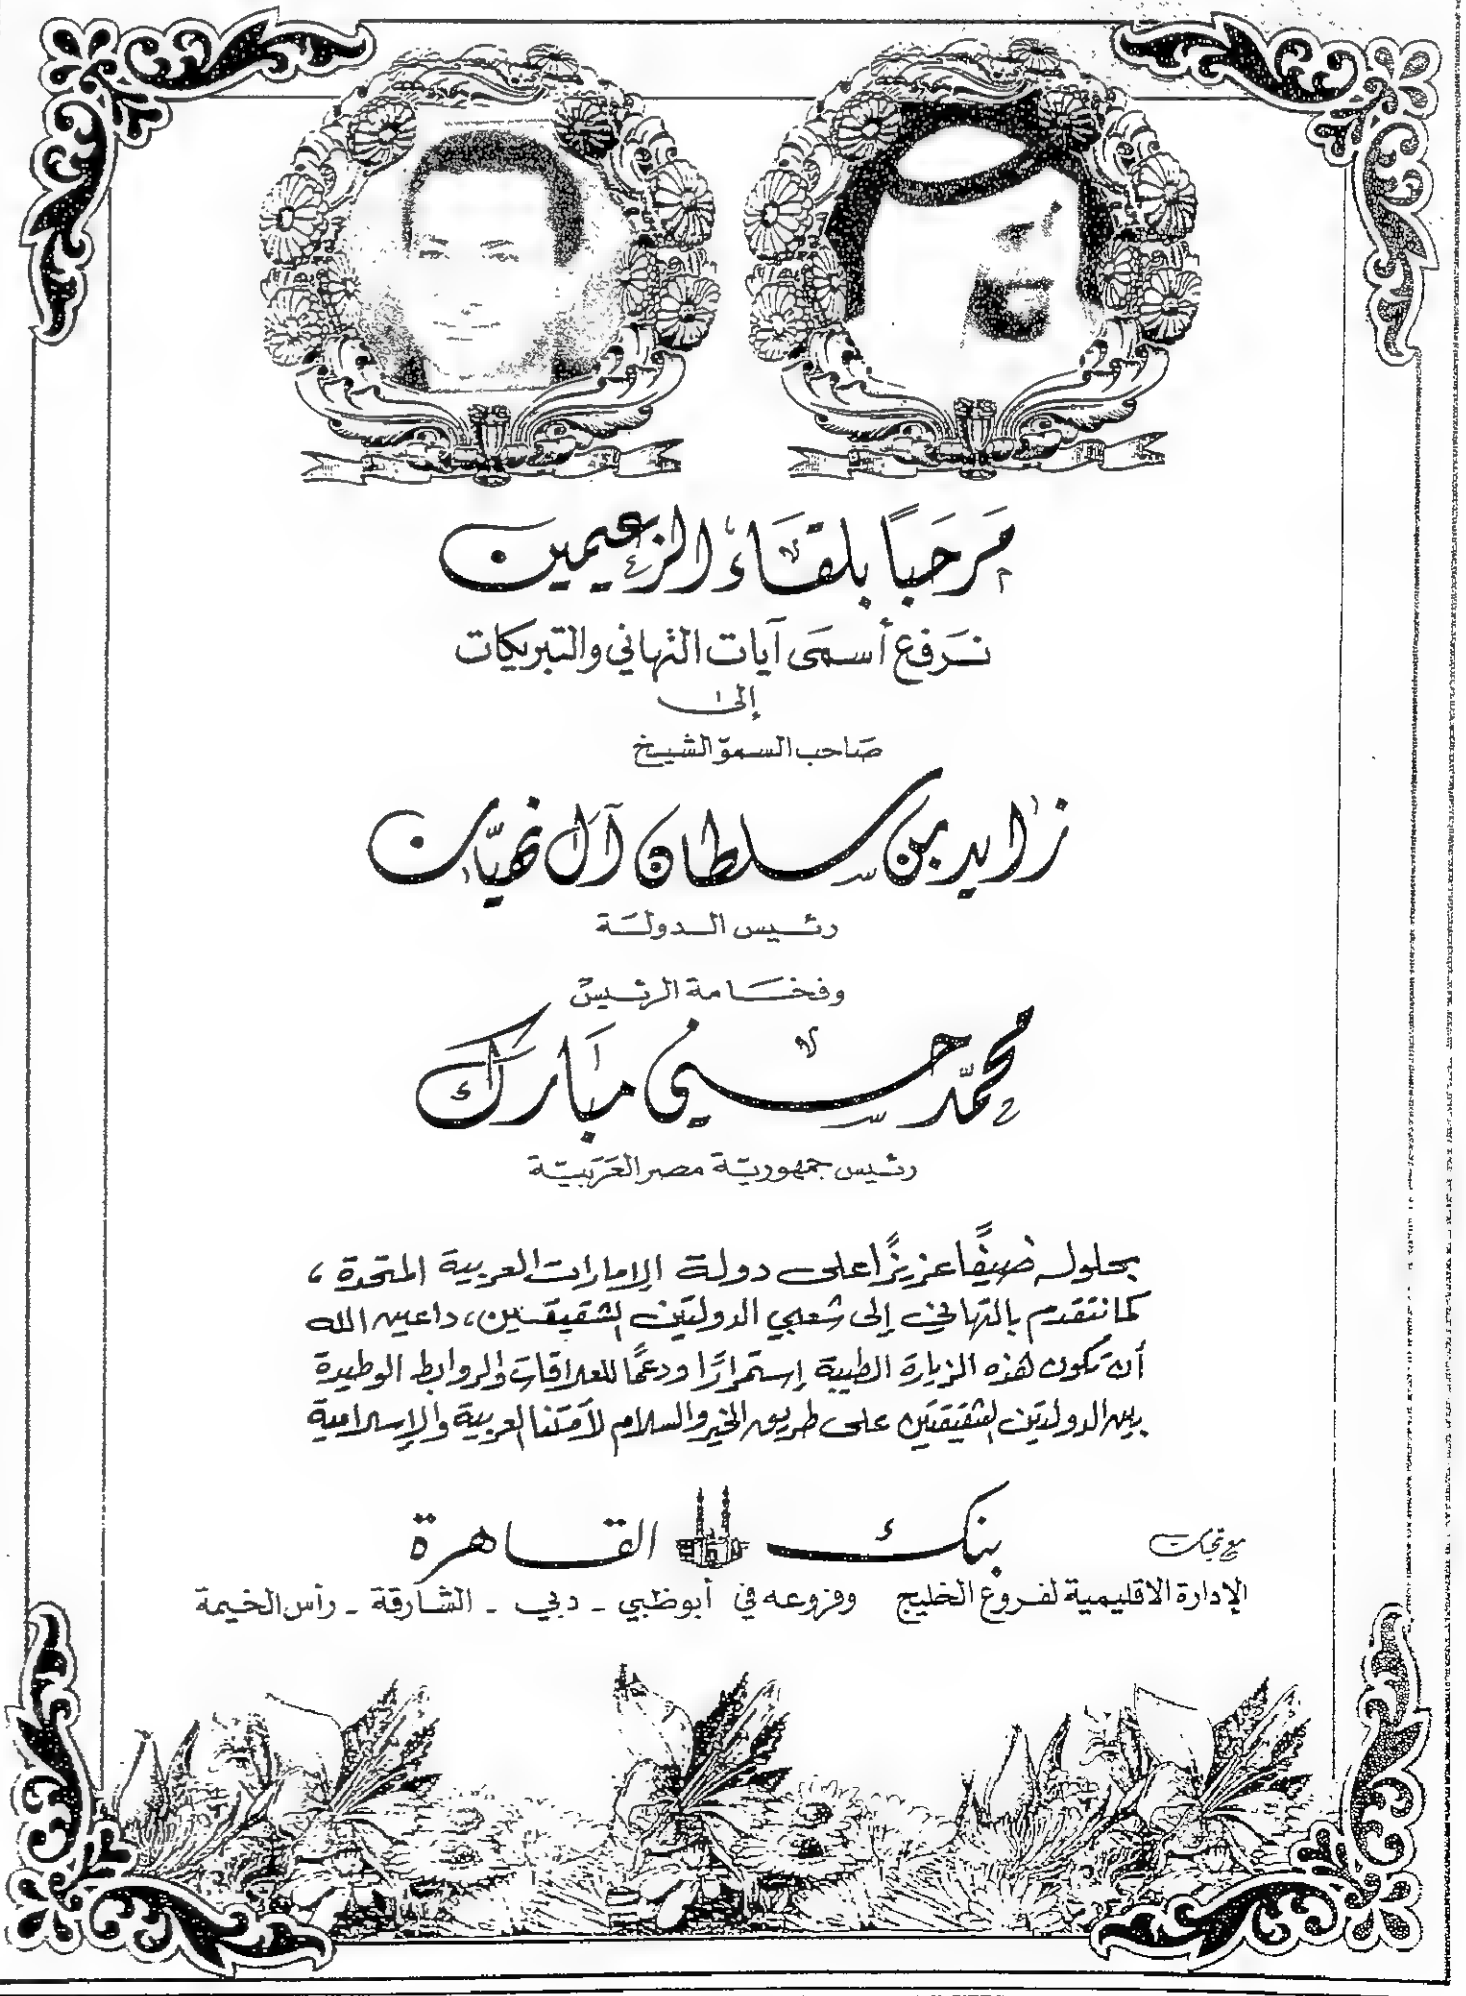 مرحبًا بلقاء الزعيمين
نرفع أسمى آيات التهاني والتبريكات
إلى
صاحب السمو الشيخ
زايد بن سلطان آل نهيان
رئيس الدولة
وفخامة الرئيس
محمد حسني مبارك
رئيس جمهورية مصر العربية
بحلوله ضيفًا عزيزًا على دولة الإمارات العربية المتحدة ،
كما نتقدم بالتهاني إلى شعبي الدولتين الشقيقتين، داعين الله
أن تكون هذه الزيارة الطيبة إستمرارًا ودعمًا للعلاقات والروابط الوطيدة
بين الدولتين الشقيقتين على طريق الخير والسلام لأمتنا العربية والإسلامية
مع تحيات بنك القاهرة
الإدارة الاقليمية لفروع الخليج وفروعه في أبوظبي - دبي - الشارقة - رأس الخيمة